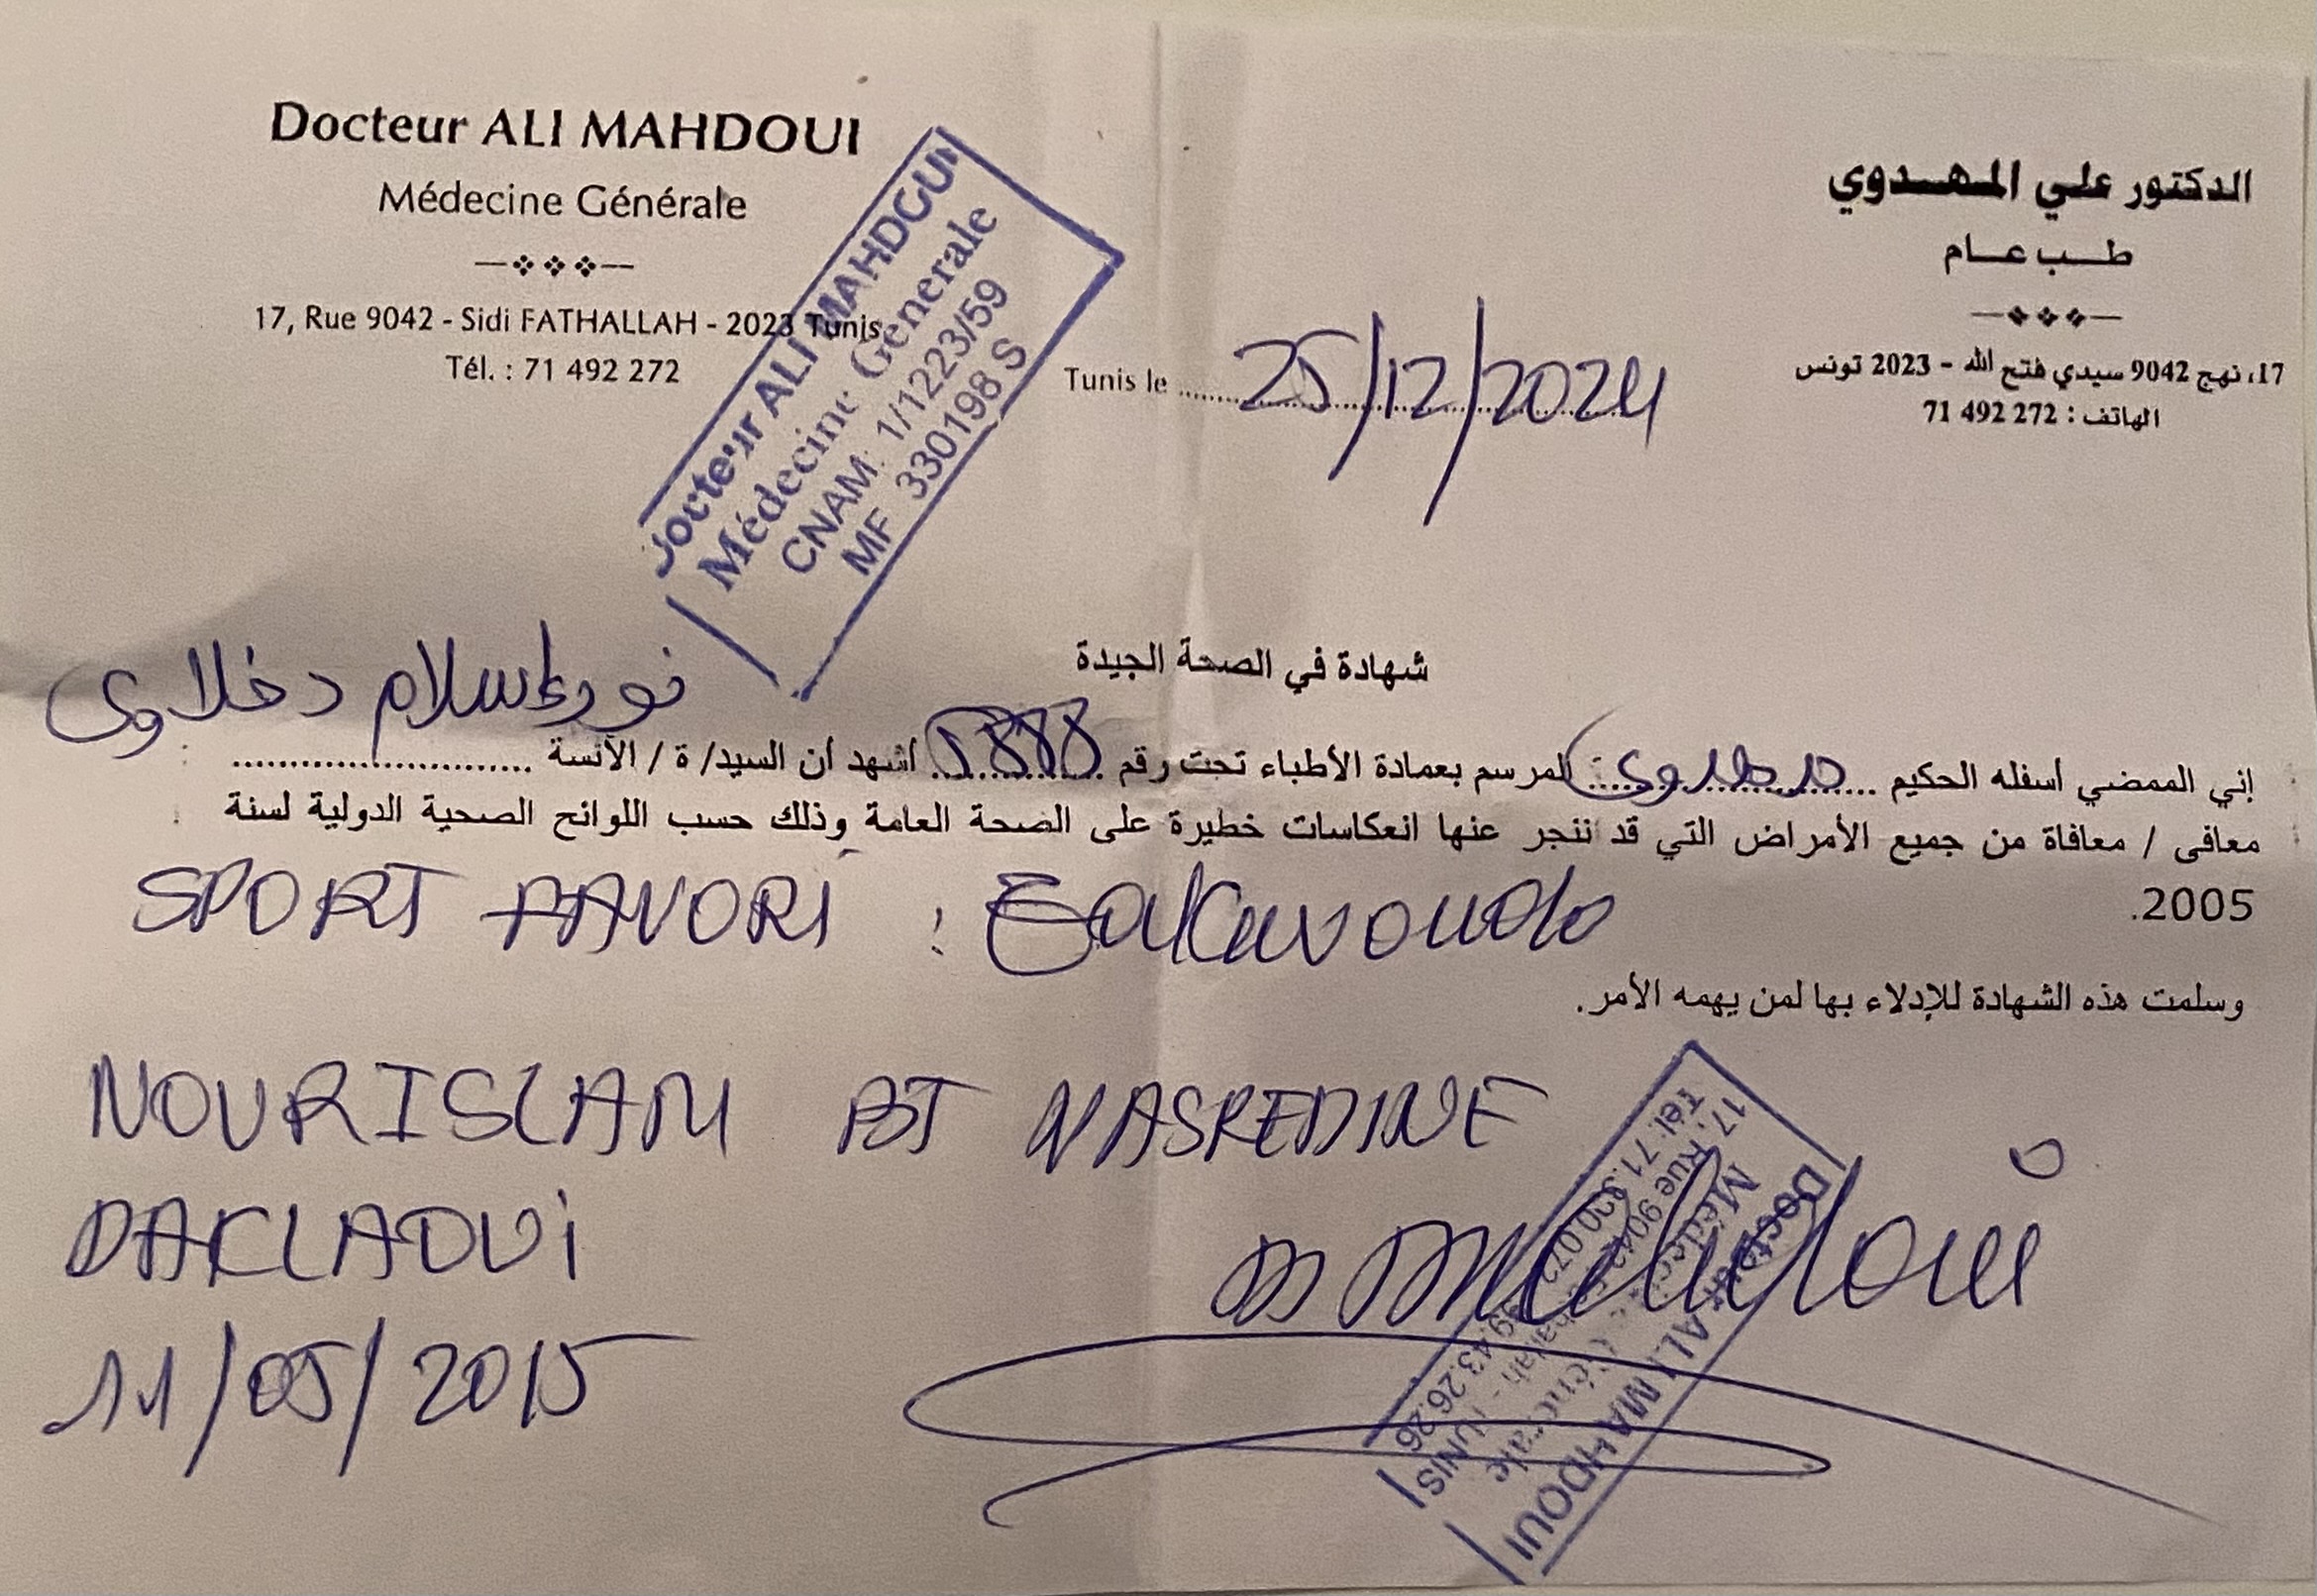 Docteur ALI MAHDOUI
Médecine Générale
17, Rue 9042 - Sidi FATHALLAH - 2023 Tunis
Tél. : 71 492 272
الدكتور علي المهدوي
طب عام
17، نهج 9042 سيدي فتح الله - 2023 تونس
الهاتف : 272 492 71
Docteur ALI MAHDOUI
Médecine Generale
CNAM: 1/1223/59
MF 330198 S
Tunis le 25/12/2024
شهادة في الصحة الجيدة
نور إسلام دخلاوي
إني الممضي أسفله الحكيم مهدوي المرسم بعمادة الأطباء تحت رقم أشهد أن السيد/ ة / الآنسة
معافى / معافاة من جميع الأمراض التي قد تنجر عنها انعكاسات خطيرة على الصحة العامة وذلك حسب اللوائح الصحية الدولية لسنة
2005.
SPORT FAVORI :
وسلمت هذه الشهادة للإدلاء بها لمن يهمه الأمر.
NOURISLAM BT NASREDINE
DAKLAOUI
11/05/2015
Docteur ALI MAHDOUI
Médecine Générale
17, Rue 9042 - TUNIS